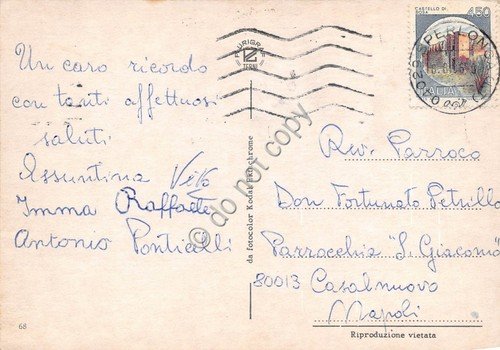 Un caro ricordo
con tanti affettuosi
saluti
Assuntina Vito
Imma Raffaele
Antonio Ponticelli
68
da fotocolor Kodak Ektachrome
© do not copy
CASTELLO DI
ROSA
450
ITALIA
Rev. Parroco
Don Fortunato Petrillo
Parrocchia "S. Giacomo"
80013 Casalnuovo
Napoli
Riproduzione vietata